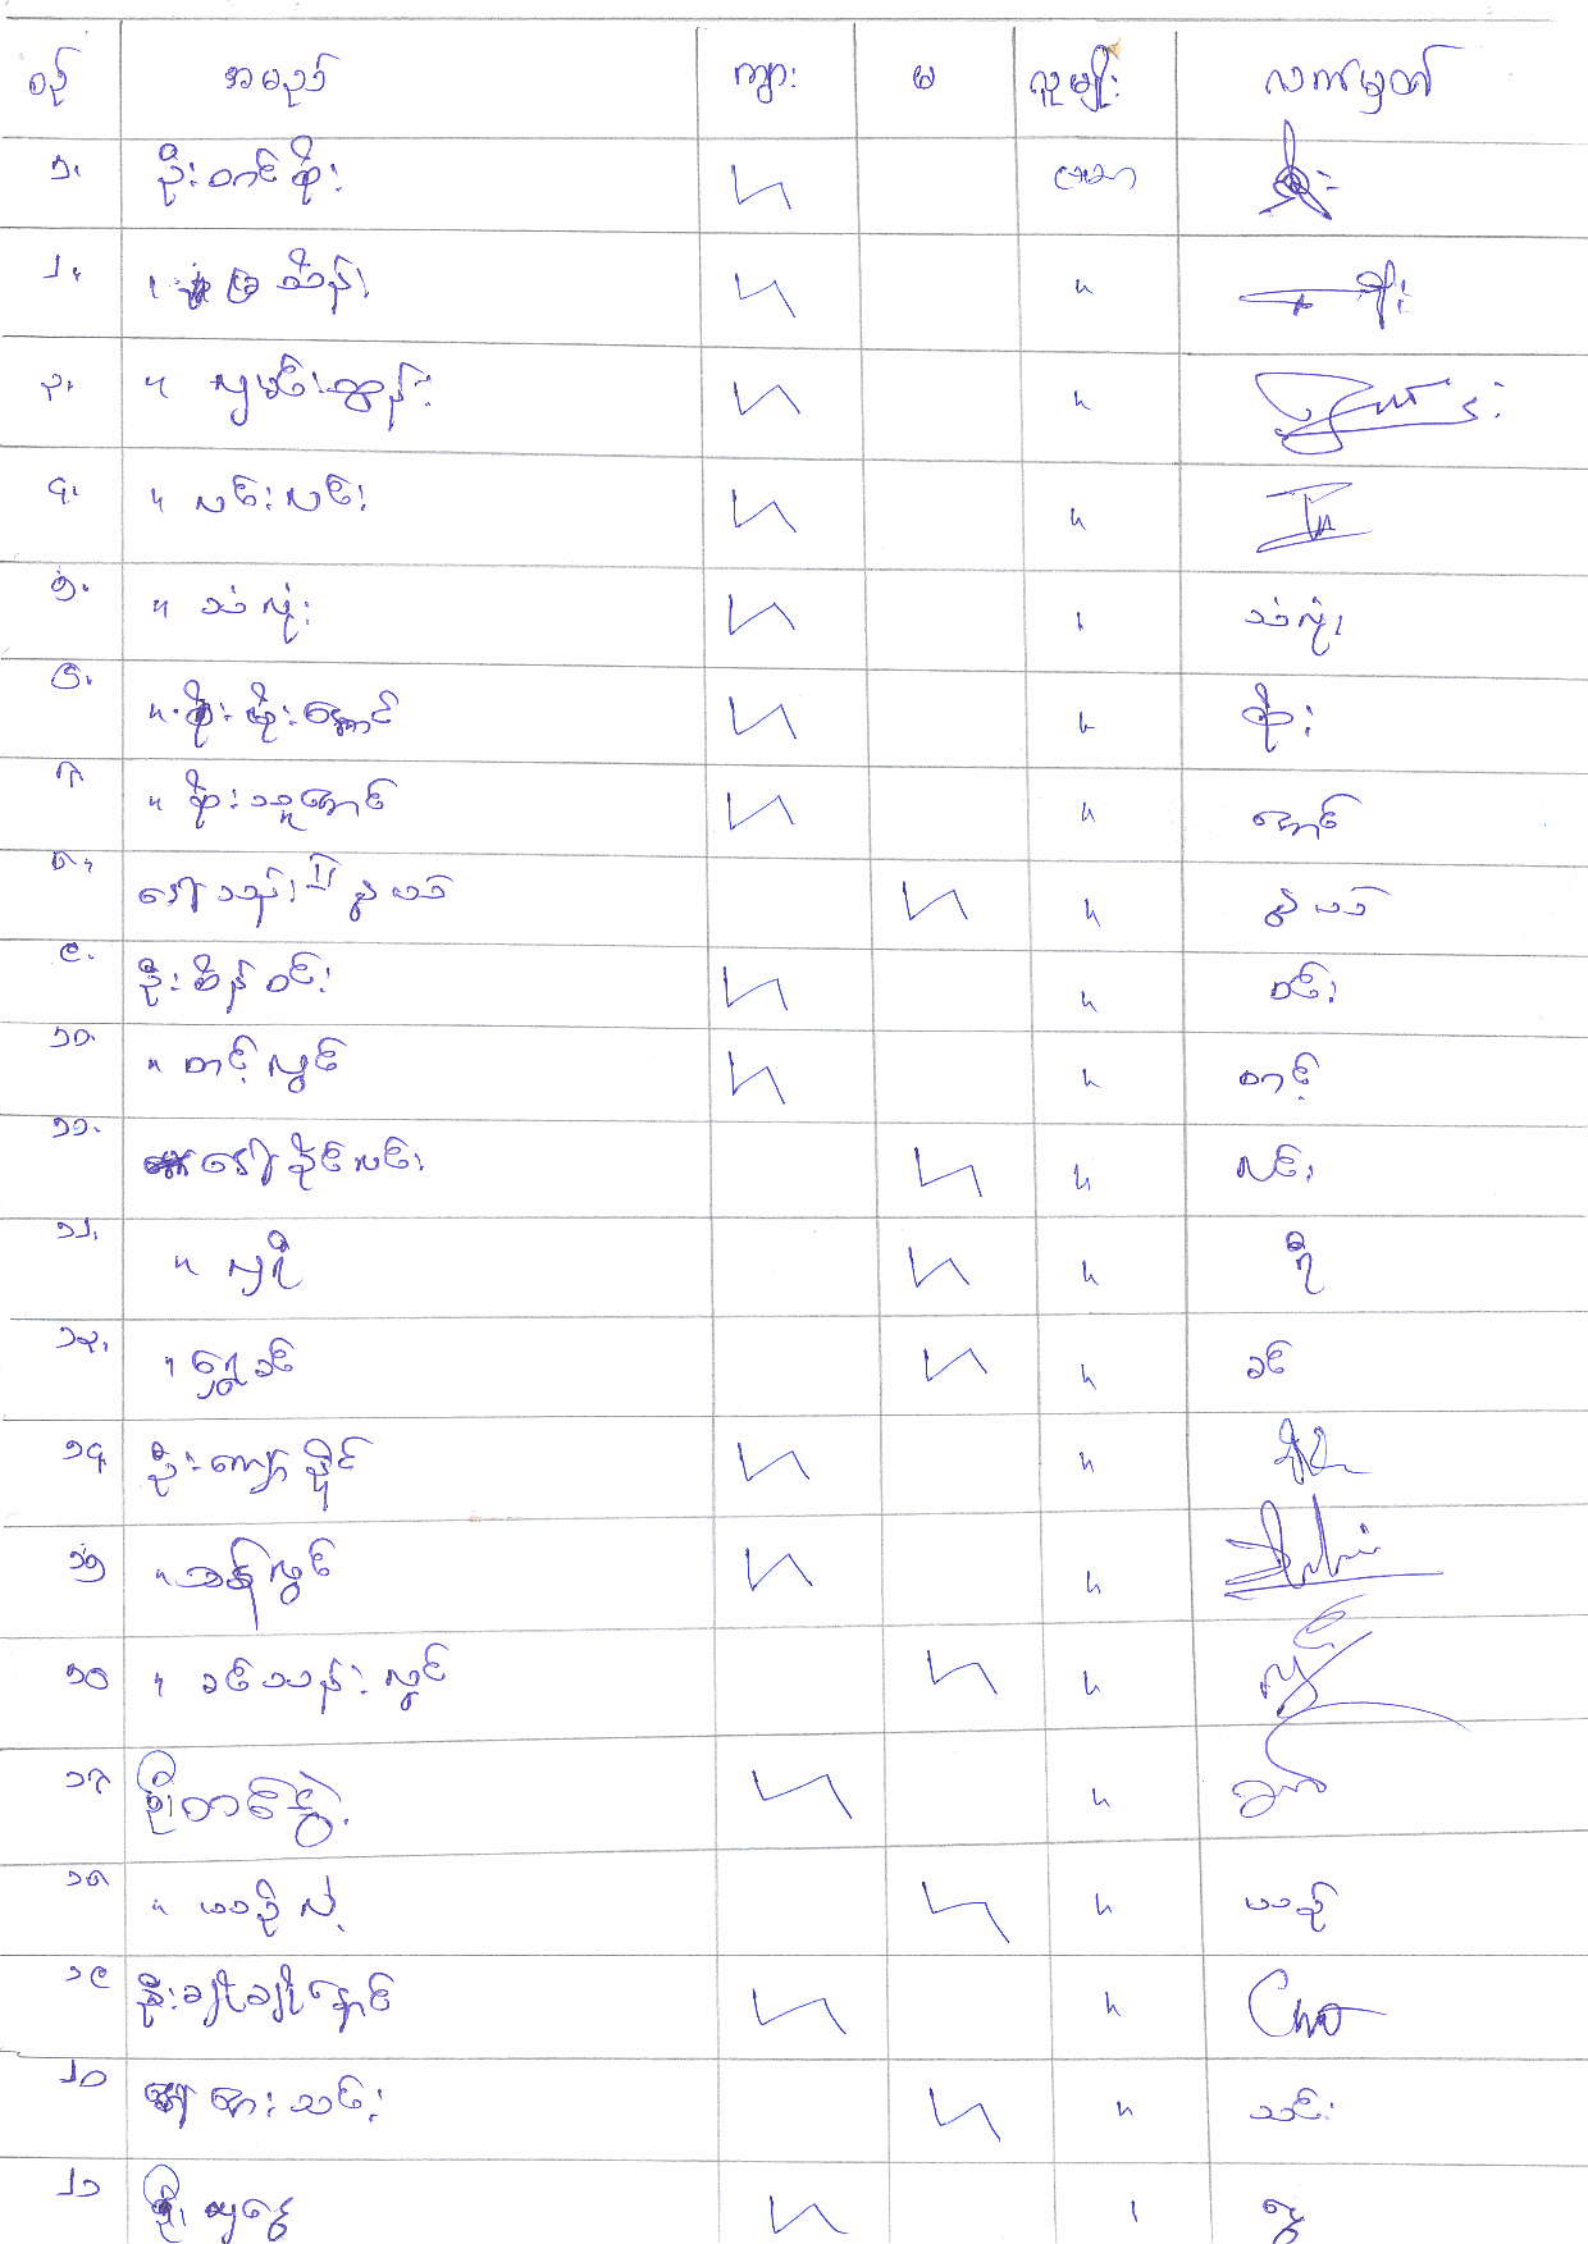 စဉ် အမည် ကျား မ လူမျိုး လက်မှတ်
၁. ဦးတင်စိုး ဗမာ စိုး
၂. " မြသိန်း " စိုး
၃. " လှမင်းထွန်း "
၄. " လင်းလင်း "
၅. " သံလုံး " သံလုံး
၆. " စိုးမိုးအောင် " စိုး
၇. " စိုးသူအောင် " အောင်
၈. ဒေါ်သန်း II နွဲ့ယဉ် " နွဲ့ယဉ်
၉. ဦးစိန်ဝင်း " ဝင်း
၁၀. " တင့်လွင် " တင့်
၁၁. ဒေါ်ခိုင်လင်း " လင်း
၁၂. " လှရီ " ရီ
၁၃. " ရွှေခင် " ခင်
၁၄ ဦးကျော်ခိုင် "
၁၅ " သန်လွင် "
၁၆ " ခင်သန်းလွင် " လွင်
၁၇ ဦးတင်ငွဲ့ "
၁၈ " ယဉ်လှဲ့ " ယဉ်
၁၉ ဦးချိုချိုအောင် " Cho
၂၀ ဒေါ်အေးသင်း " သင်း
၂၁ ဦးလှငွေ " ငွေ